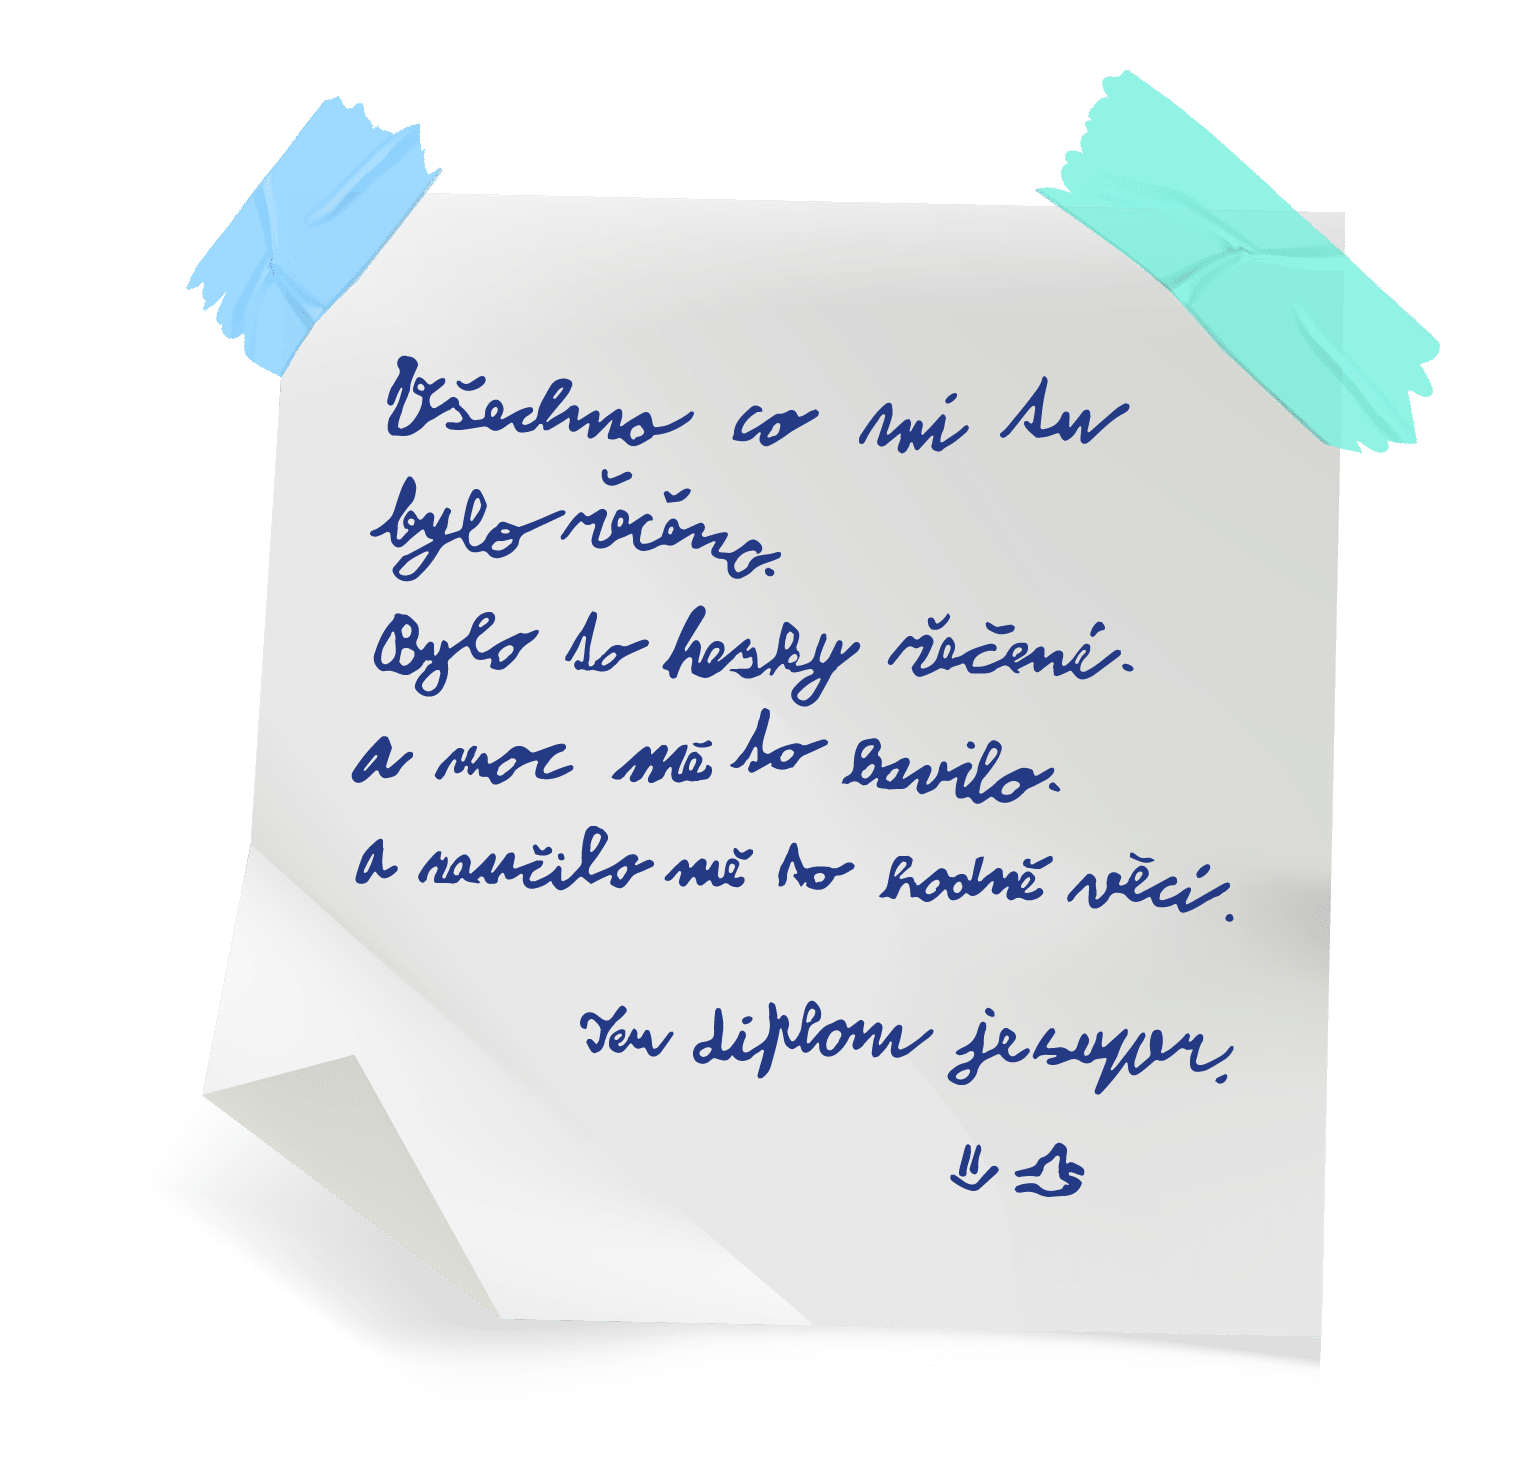 Všechno co mi tu
bylo řečeno.
Bylo to hesky řečení.
a moc mě to bavilo.
a naučilo mě to hodně věcí.
Ten diplom je supr.